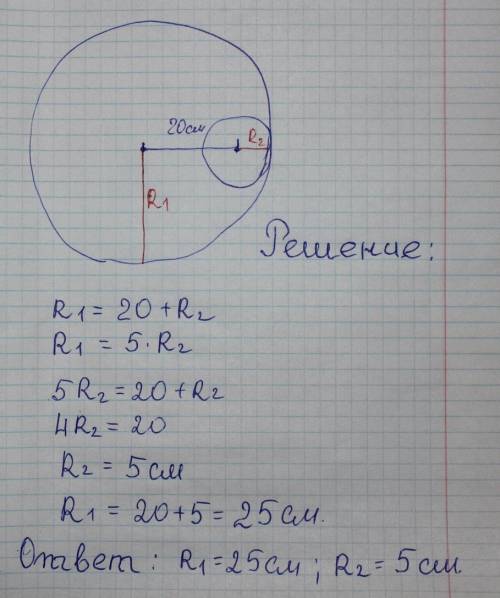 20см
R₂
R₁
Решение:
R₁ = 20 + R₂
R₁ = 5 · R₂
5R₂ = 20 + R₂
4R₂ = 20
R₂ = 5 см
R₁ = 20+5 = 25 см.
Ответ: R₁ = 25 см ; R₂ = 5 см.